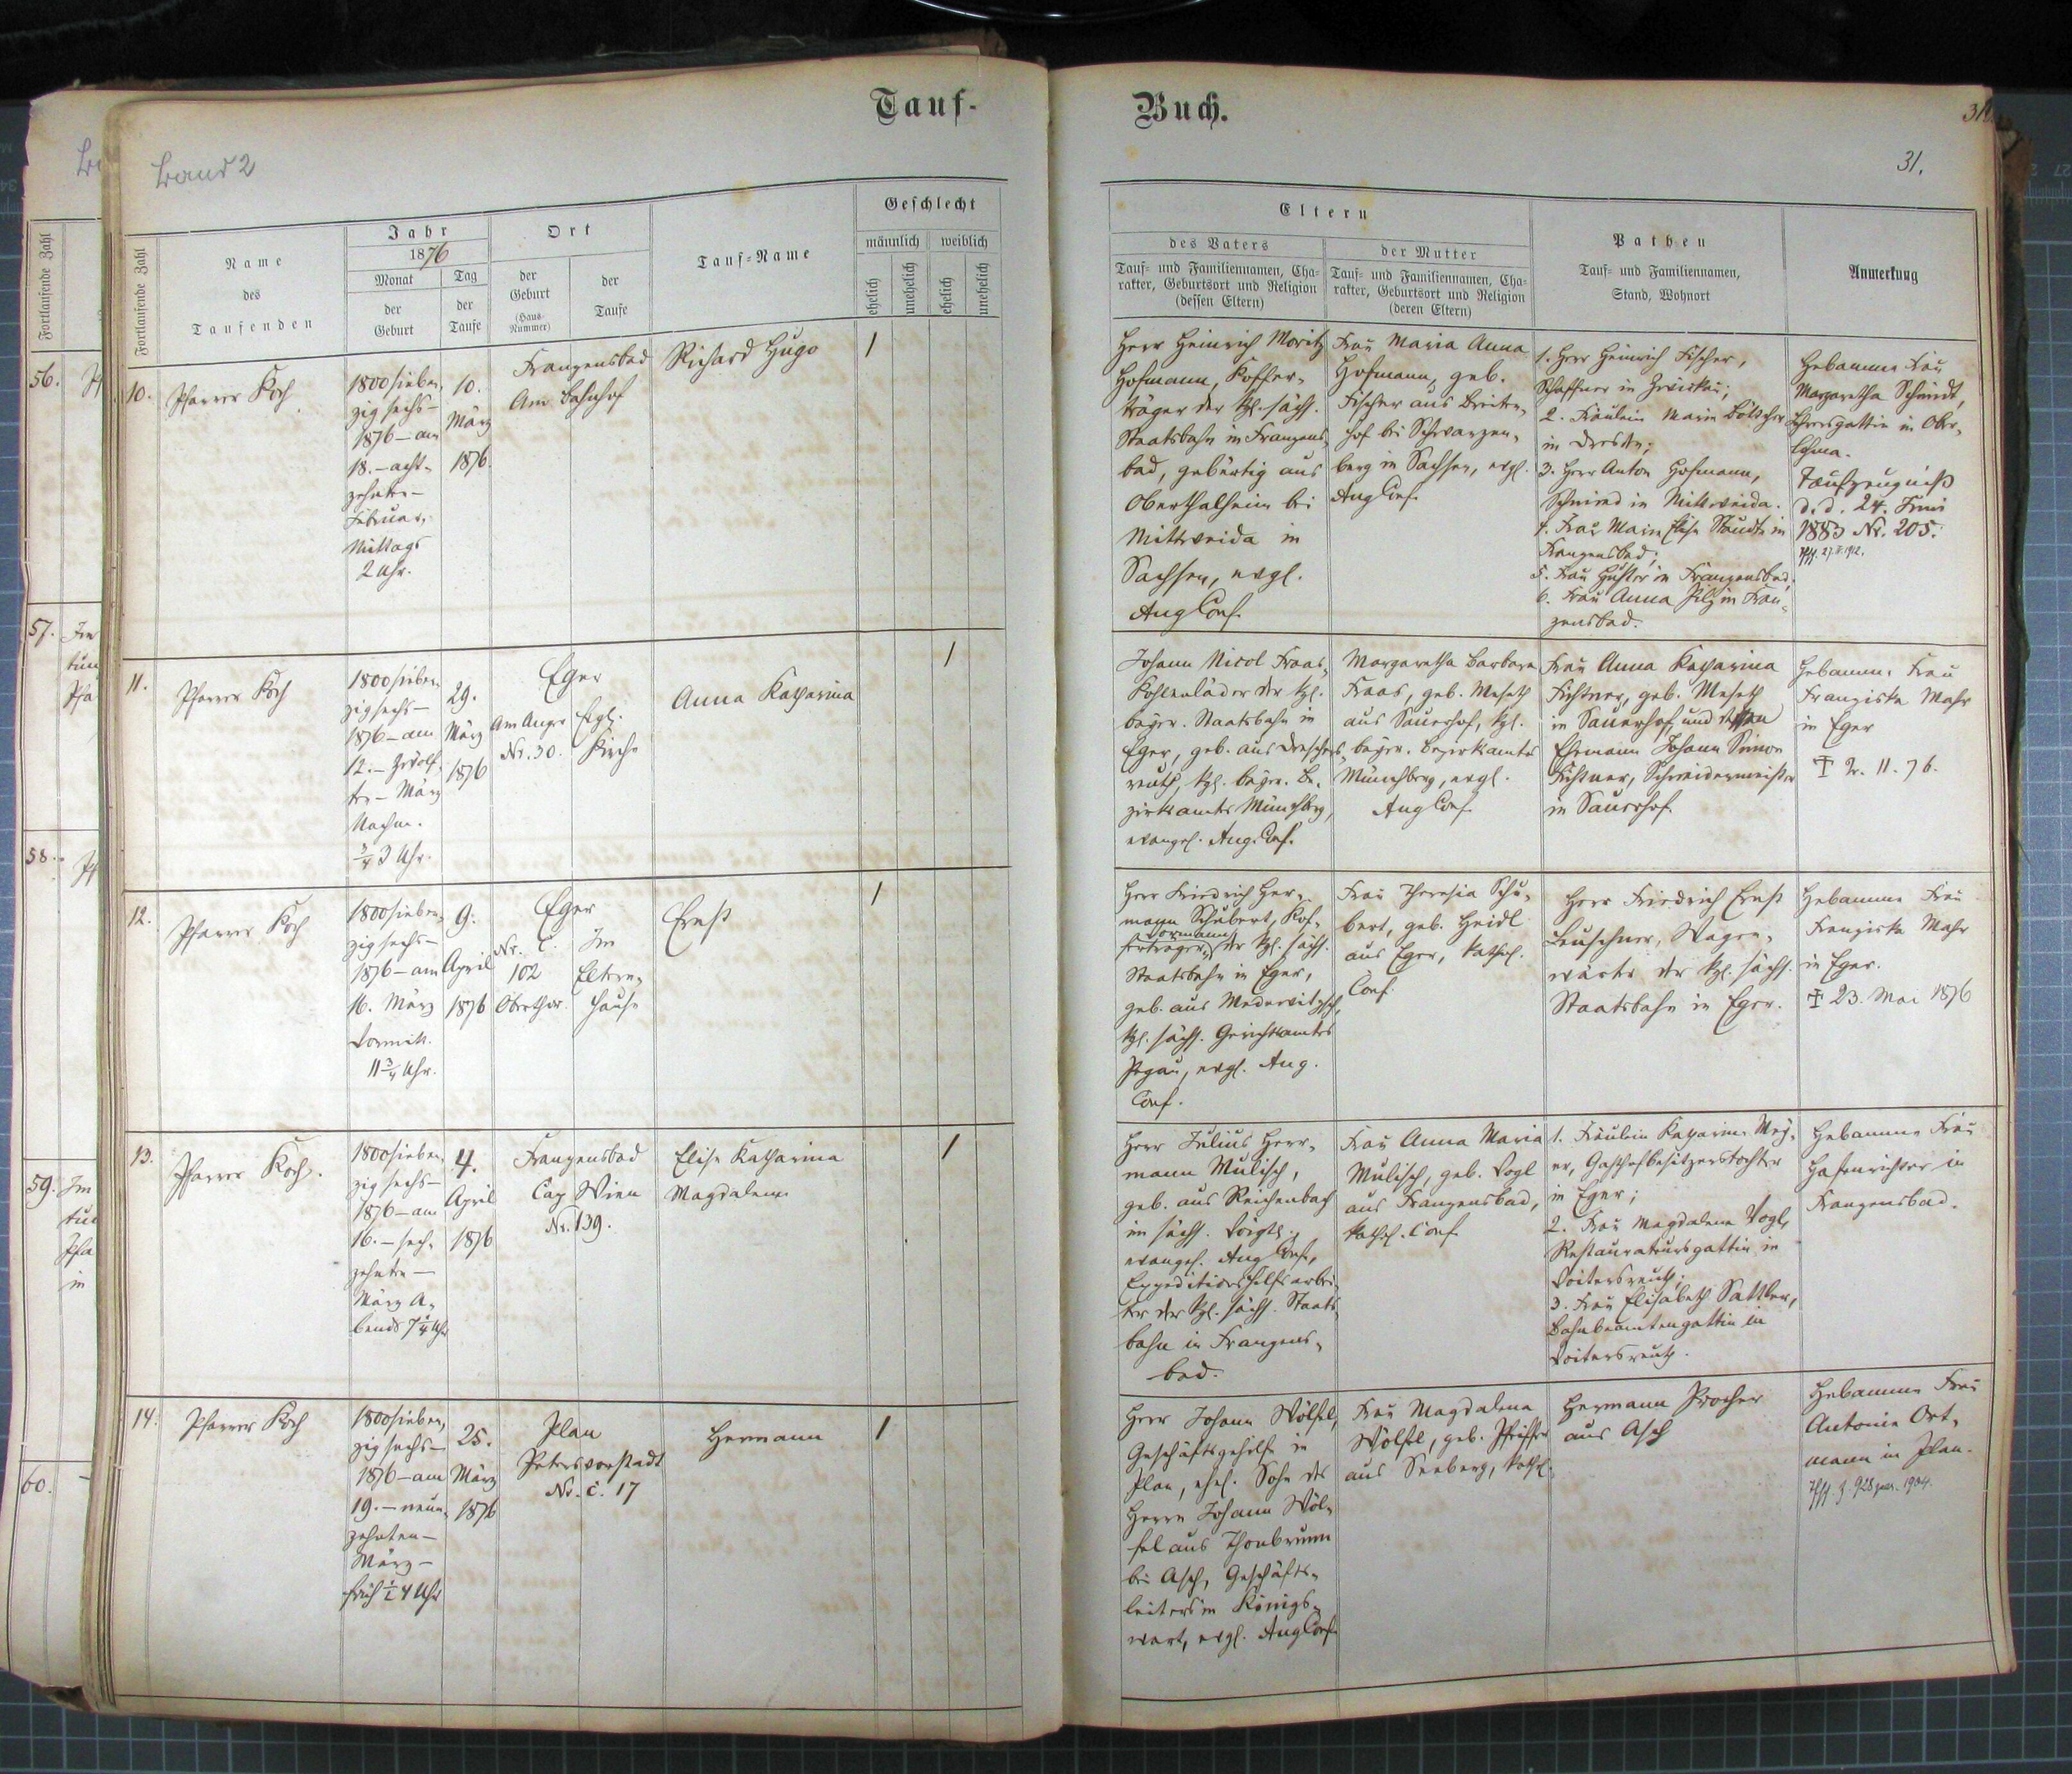 Tauf-
Buch.
31.
Band 2
Fortlaufende Zahl
Name
des
Taufenden
Jahr
1876
Monat
der
Geburt
Tag
der
Taufe
Ort
der
Geburt
(Haus-
Nummer)
der
Taufe
Tauf-Name
Geschlecht
männlich
weiblich
ehelich
unehelich
ehelich
unehelich
Eltern
des Vaters
Tauf- und Familiennamen, Cha-
rakter, Geburtsort und Religion
(dessen Eltern)
der Mutter
Tauf- und Familiennamen, Cha-
rakter, Geburtsort und Religion
(deren Eltern)
Pathen
Tauf- und Familiennamen,
Stand, Wohnort
Anmerkung
10.
Pfarrer Koch
1800 sieben-
zig sechs-
1876 - am
18. - acht-
zehnten -
Februar,
Mittags
2 Uhr.
10.
März
1876.
Franzensbad
Am Bahnhof
Richard Hugo
1
Herr Heinrich Moritz
Hofmann, Koffer-
träger der kgl. sächs.
Staatsbahn in Franzens-
bad, gebürtig aus
Oberthalheim bei
Mittweida in
Sachsen, evgl.
Aug Conf.
Frau Maria Anna
Hofmann, geb.
Fischer aus Breiten-
hof bei Schwarzen-
berg in Sachsen, evgl.
Aug Conf.
1. Herr Heinrich Fischer,
Schaffner in Zwickau;
2. Fräulein Marie Böttcher
in Dresden;
3. Herr Anton Hofmann,
Schmied in Mittweida.
4. Frau Marie Elise Staudte in
Franzensbad;
5. Frau Huster in Franzensbad;
6. Frau Anna Pilz in Fran-
zensbad.
Hebamme Frau
Margaretha Schmidt,
Lehrersgattin in Ober-
Lohma.
Taufzeugniß
d. d. 24. Juni
1883 Nr. 205.
11.
Pfarrer Koch
1800 sieben-
zig sechs-
1876 - am
12. - zwölf-
ten - März
Nachm.
3/4 3 Uhr.
29.
März
1876
Eger
Am Anger
Nr. 30.
Evgl.
Kirche
Anna Katharina
1
Johann Nicol Fraas,
Kohlenlader der kgl.
bayer. Staatsbahn in
Eger, geb. aus Drescher-
reuth, kgl. bayer. Be-
zirksamtes Münchberg,
evangel. Aug. Conf.
Margaretha Barbara
Fraas, geb. Meseth
aus Sauerhof, kgl.
bayer. Bezirksamtes
Münchberg, evgl.
Aug Conf.
Frau Anna Katharina
Fichtner, geb. Meseth
in Sauerhof und dessen
Ehemann Johann Simon
Fichtner, Schneidermeister
in Sauerhof.
Hebamme Frau
Franziska Mahr
in Eger
✝ 2. 11. 76.
12.
Pfarrer Koch
1800 sieben-
zig sechs-
1876 - am
16. März
Vormitt.
11 3/4 Uhr.
9.
April
1876
Eger
Nr. C.
102
Oberthor.
Im
Eltern-
hause
Ernst
1
Herr Friedrich Her-
mann Schubert, Kof-
ferträger
vormann
der kgl. sächs.
Staatsbahn in Eger,
geb. aus Mederwitzsch,
kgl. sächs. Gerichtsamtes
Pegau, evgl. Aug.
Conf.
Frau Theresia Schu-
bert, geb. Heidl
aus Eger, kathol.
Conf.
Herr Friedrich Ernst
Leuschner, Wagen-
wärter der kgl. sächs.
Staatsbahn in Eger.
Hebamme Frau
Franziska Mahr
in Eger.
✝ 23. Mai 1876
13.
Pfarrer Koch.
1800 sieben-
zig sechs-
1876 - am
16. - sech-
zehnten -
März A-
bends 7 1/4 Uhr
4.
April
1876
Franzensbad
Cap Wien
Nr. 139.
Elise Katharina
Magdalena
1
Herr Julius Herr-
mann Mulisch,
geb. aus Reichenbach
im sächs. Voigtl.,
evangel. Aug Conf.,
Expeditionshilfsarbei-
ter der kgl. sächs. Staats-
bahn in Franzens-
bad.
Frau Anna Maria
Mulisch, geb. Vogl
aus Franzensbad,
kathol. Conf.
1. Fräulein Katharina May-
er, Gasthofbesitzerstochter
in Eger;
2. Frau Magdalena Vogl,
Restaurateursgattin in
Voitersreuth;
3. Frau Elisabeth Sattler,
Bahnbeamtengattin in
Voitersreuth.
Hebamme Frau
Hafenrichter in
Franzensbad.
14.
Pfarrer Koch
1800 sieben-
zig sechs-
1876 - am
19. - neun-
zehnten -
März -
früh 1/2 4 Uhr
25.
März
1876
Plan
Petersvorstadt
Nr. c. 17
Hermann
1
Herr Johann Wölfel,
Geschäftsgehilfe in
Plan, ehel. Sohn des
Herrn Johann Wöl-
fel aus Thonbrunn
bei Asch, Geschäfts-
leiters in Königs-
wart, evgl. Aug Conf.
Frau Magdalena
Wölfel, geb. Pfeiffer
aus Seeberg, kathol.
Hermann Procher
aus Asch
Hebamme Frau
Antonie Ort-
mann in Plan.
56.
57.
58.
59.
60.